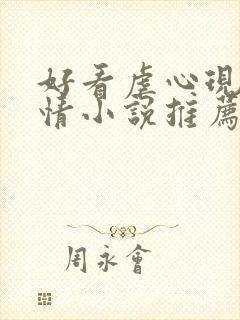 好看虐心現
情小說推薦
周永會